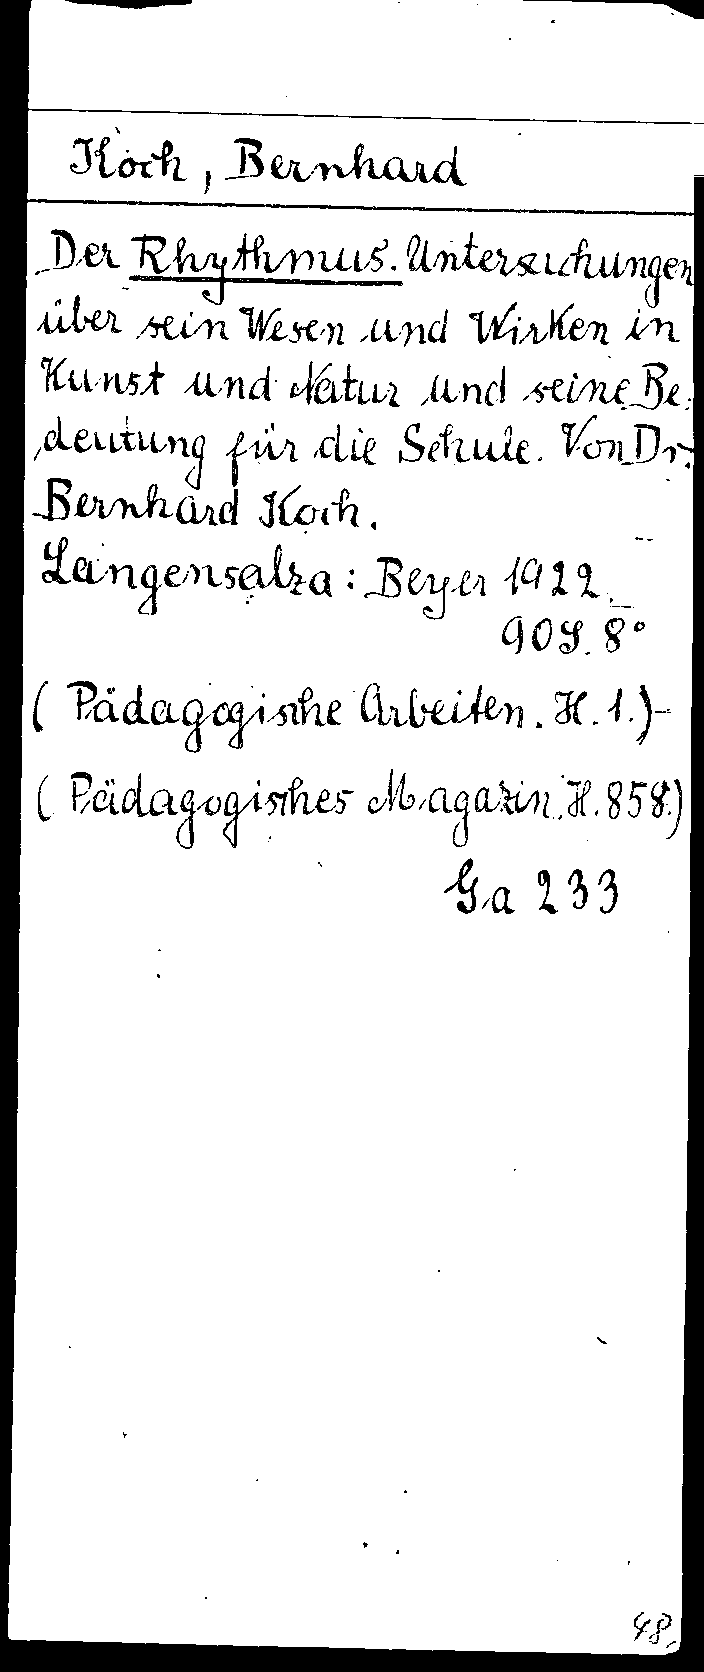 Koch, Bernhard
Der Rhythmus. Untersuchungen
über sein Wesen und Wirken in
Kunst und Natur und seine Be-
deutung für die Schule. Von Dr.
Bernhard Koch.
Langensalza: Beyer 1922.
90 S. 8°
(Pädagogische Arbeiten. H. 1.)-
(Pädagogisches Magazin. H. 858.)
Ga 233
48.